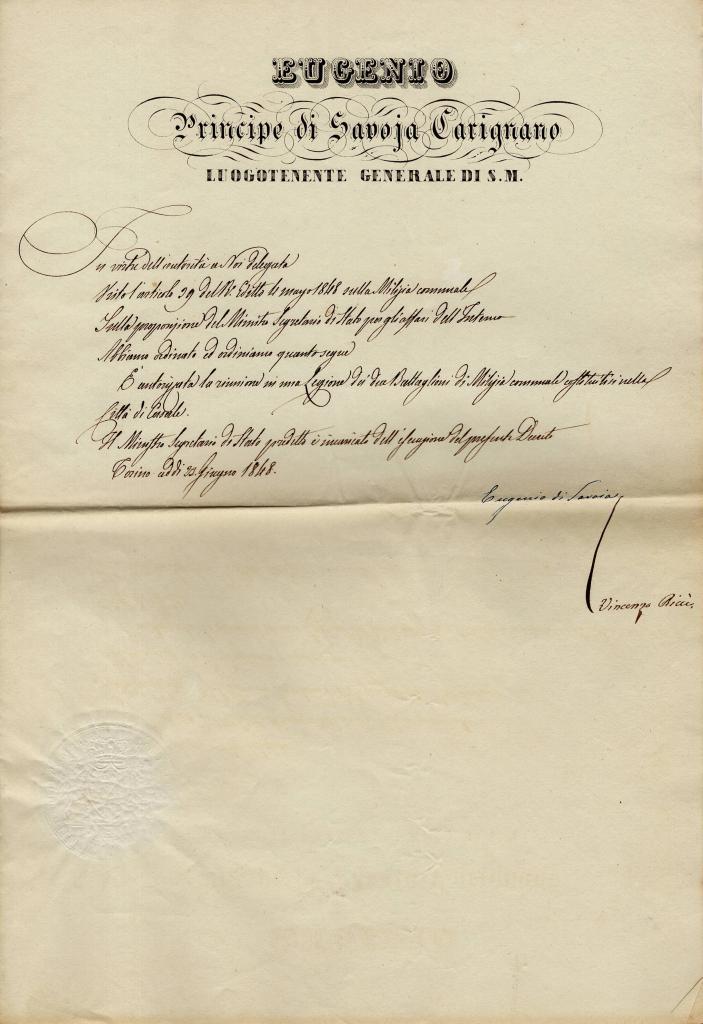 EUGENIO
Principe di Savoja Carignano
LUOGOTENENTE GENERALE DI S.M.
In virtù dell'autorità a Noi delegata
Visto l'articolo 39 del R. Editto 4 marzo 1848 sulla Milizia comunale
Sulla proposizione del Ministro Segretario di Stato per gli affari dell'Interno
Abbiamo ordinato ed ordiniamo quanto segue
È autorizzata la riunione in una Legione dei due Battaglioni di Milizia comunale costituitisi nella
Città di Casale.
Il Ministro Segretario di Stato predetto è incaricato dell'esecuzione del presente Decreto
Torino addì Giugno 1848.
Eugenio di Savoia
Vincenzo Ricci